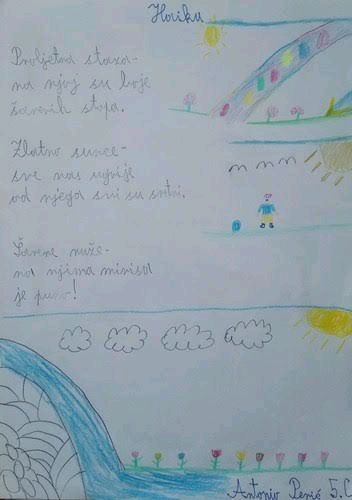 Haiku
Proljetna staza-
na njoj su boje
šarenih stopa.
Zlatno sunce-
sve nas ugrije
od njega svi su sretni.
Šarene ruže-
na njima mirisa
je puno!
Antonio Perić 5.C